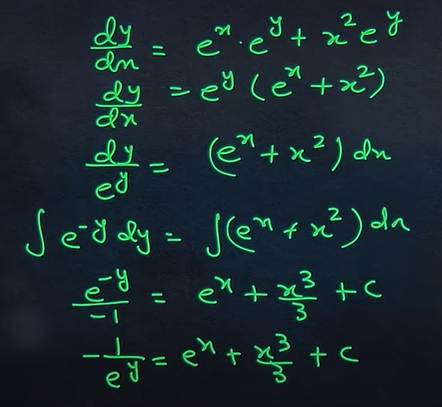 dy/dx = e^x · e^y + x² e^y
dy/dx = e^y (e^x + x²)
dy/e^y = (e^x + x²) dx
∫ e^-y dy = ∫(e^x + x²) dx
e^-y/-1 = e^x + x³/3 + c
-1/e^y = e^x + x³/3 + c